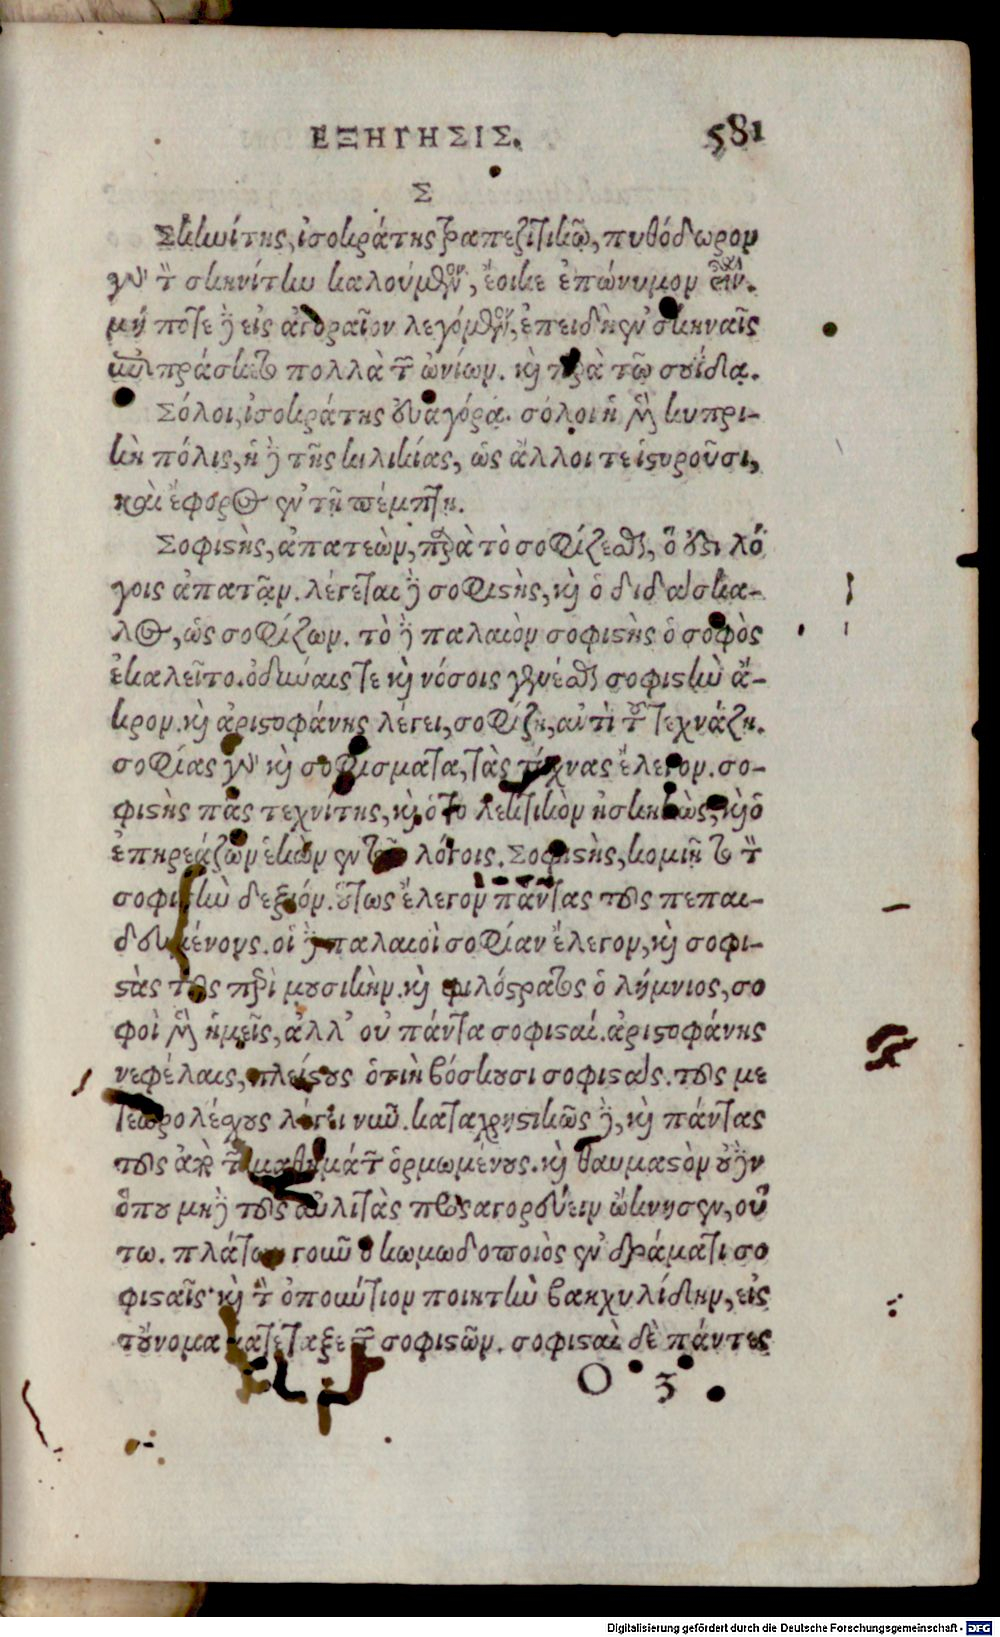 ΕΞΗΓΗΣΙΣ. 581
Σ
Σκκωίτης, ἰσοκράτης τραπεζιτικῷ, πυθόδωρον
γδ τὸν σκηνίτην καλούμενον, ἔοικε ἐπώνυμον εἶναι.
μή ποτε δὲ εἰς ἀγοραῖον λεγόμενον, ἐπειδὴ ἐν σκηναῖς
ἐπιπράσκετο πολλὰ τῶν ὠνίων. καὶ παρὰ τῷ σουίδα.
Σόλοι, ἰσοκράτης εὐαγόρᾳ. σόλοι ἡ μὲν κυπρι-
κὴ πόλις, ἡ δὲ τῆς κιλικίας, ὡς ἄλλοι τε ἱστοροῦσι,
καὶ ἔφορος ἐν τῇ πέμπτῃ.
Σοφιστὴς, ἀπατεὼν, παρὰ τὸ σοφίζεσθαι, ὅ ἐστι λό
γοις ἀπατᾶν. λέγεται δὲ σοφιστὴς, καὶ ὁ διδάσκα-
λος, ὡς σοφίζων. τὸ δὲ παλαιὸν σοφιστὴς ὁ σοφὸς
ἐκαλεῖτο. ὀδύναις τε καὶ νόσοις γενέσθαι σοφιστὴν ἄ-
κρον. καὶ ἀριστοφάνης λέγει, σοφίζῃ, ἀντὶ τοῦ τεχνάζῃ.
σοφίας γδ καὶ σοφίσματα, τὰς τέχνας ἔλεγον. σο-
φιστὴς πᾶς τεχνίτης, καὶ ὁ τὸ λεκτικὸν ἠσκηκὼς, καὶ ὁ
ἐπηρεάζων ἑκὼν ἐν τοῖς λόγοις. Σοφιστὴς, κομιδῇ τὸ τὸν
σοφιστὴν δεξιόν. οὕτως ἔλεγον πάντας τοὺς πεπαι-
δευμένους. οἱ δὲ παλαιοὶ σοφίαν ἔλεγον, καὶ σοφι-
στὰς τοὺς περὶ μουσικήν. καὶ φιλόστρατος ὁ λήμνιος, σο
φοὶ μὲν ἡμεῖς, ἀλλ' οὐ πάντα σοφισταί. ἀριστοφάνης
νεφέλαις, πλείστους ὁτιὴ βόσκουσι σοφιστάς. τοὺς με
τεωρολέσχους λέγει νῦν. καταχρηστικῶς δὲ, καὶ πάντας
τοὺς ἀπὸ τῶν μαθημάτων ὁρμωμένους. καὶ θαυμαστὸν οὐδὲν
ὅπου μηδὲ τοὺς αὐλιτὰς προσαγορεύειν ὤκνησεν, οὕ
τω. πλάτων γοῦν ὁ κωμωδοποιὸς ἐν δράματι σο
φισταῖς· καὶ τὸν ὀπούντιον ποιητὴν βακχυλίδην, εἰς
τοὔνομα κατέταξε τῶν σοφιστῶν. σοφισταὶ δὲ πάντες
O 3
Digitalisierung gefördert durch die Deutsche Forschungsgemeinschaft - DFG